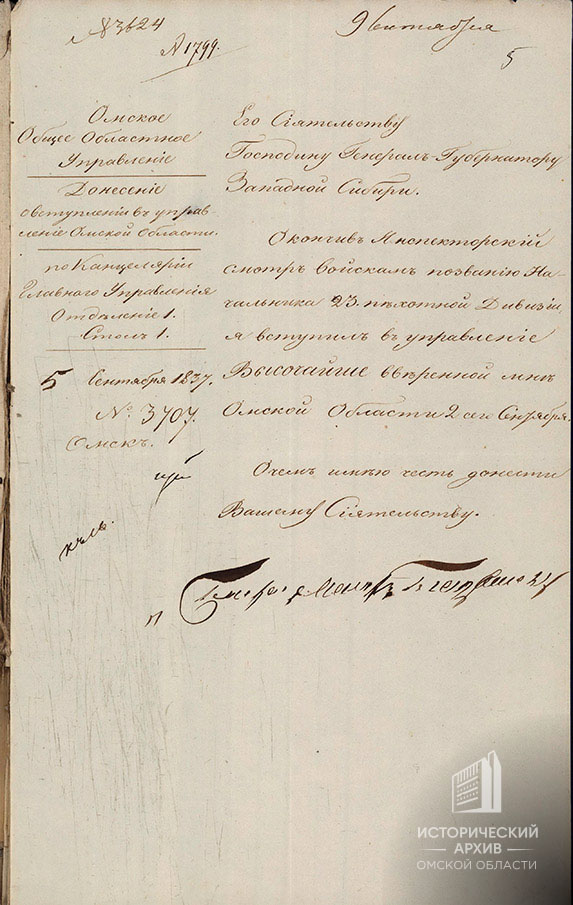 № 3624
№ 1799.
9 Сентября
5
Омское
Общее Областное
Управленіе
Донесеніе
о вступленіи въ управ-
леніе Омской Области.
по Канцеляріи
Главного Управленія
Отдѣленіе 1.
Столъ 1.
5 Сентября 1837.
№ 3707.
Омскъ.
Его Сіятельству
Господину Генералъ-Губернатору
Западной Сибири.
Окончивъ Инспекторскій
смотръ войскамъ по званію На-
чальника 23. пѣхотной Дивизіи,
я вступилъ въ управленіе
Высочайше ввѣренной мнѣ
Омской Области 2 сего Сентября.
О чемъ имѣю честь донести
Вашему Сіятельству.
Генералъ Маіоръ
ИСТОРИЧЕСКИЙ
АРХИВ
ОМСКОЙ ОБЛАСТИ